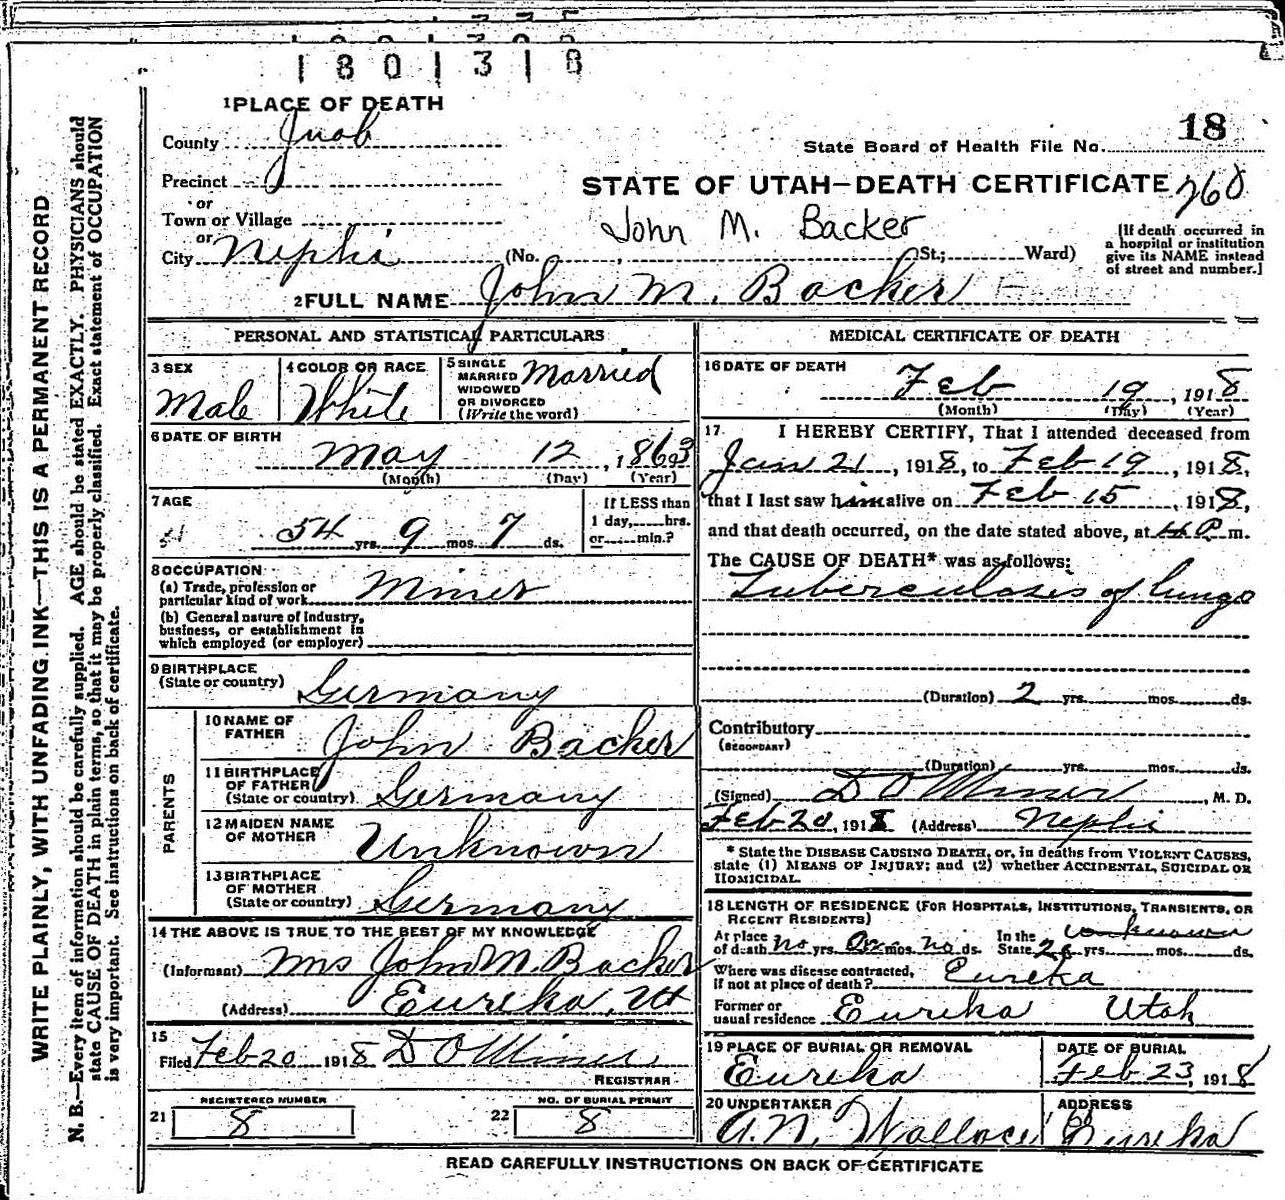 1801318
1 PLACE OF DEATH
County Juab
State Board of Health File No. 18
Precinct
or
Town or Village
or
City Nephi
STATE OF UTAH—DEATH CERTIFICATE 260
John M. Backer
(No. , St.; Ward)
[If death occurred in
a hospital or institution
give its NAME instead
of street and number.]
2 FULL NAME John M. Backer
PERSONAL AND STATISTICAL PARTICULARS
3 SEX
Male
4 COLOR OR RACE
White
5 SINGLE
MARRIED
WIDOWED
OR DIVORCED
(Write the word)
Married
6 DATE OF BIRTH
May 12, 1863
(Month) (Day) (Year)
7 AGE
54 yrs. 9 mos. 7 ds.
If LESS than
1 day, hrs.
or min.?
8 OCCUPATION
(a) Trade, profession or
particular kind of work Miner
(b) General nature of industry,
business, or establishment in
which employed (or employer)
9 BIRTHPLACE
(State or country) Germany
PARENTS
10 NAME OF
FATHER John Backer
11 BIRTHPLACE
OF FATHER
(State or country) Germany
12 MAIDEN NAME
OF MOTHER Unknown
13 BIRTHPLACE
OF MOTHER
(State or country) Germany
14 THE ABOVE IS TRUE TO THE BEST OF MY KNOWLEDGE
(Informant) Mrs John M. Backer
(Address) Eureka, Ut
15
Filed Feb 20 1918 D O Miner
REGISTRAR
21 REGISTERED NUMBER
8
22 NO. OF BURIAL PERMIT
8
MEDICAL CERTIFICATE OF DEATH
16 DATE OF DEATH
Feb 19, 1918
(Month) (Day) (Year)
17. I HEREBY CERTIFY, That I attended deceased from
Jan 21, 1918, to Feb 19, 1918,
that I last saw him alive on Feb 15, 1918,
and that death occurred, on the date stated above, at 4 P. m.
The CAUSE OF DEATH* was as follows:
Tuberculosis of lungs
(Duration) 2 yrs. mos. ds.
Contributory
(SECONDARY)
(Duration) yrs. mos. ds.
(Signed) D O Miner, M. D.
Feb 20, 1918 (Address) Nephi
* State the DISEASE CAUSING DEATH, or, in deaths from VIOLENT CAUSES,
state (1) MEANS OF INJURY; and (2) whether ACCIDENTAL, SUICIDAL OR
HOMICIDAL.
18 LENGTH OF RESIDENCE (FOR HOSPITALS, INSTITUTIONS, TRANSIENTS, OR
RECENT RESIDENTS)
At place In the unknown
of death no yrs. On mos. no ds. State 28 yrs. mos. ds.
Where was disease contracted,
if not at place of death? Eureka
Former or
usual residence Eureka Utah
19 PLACE OF BURIAL OR REMOVAL
Eureka
DATE OF BURIAL
Feb 23, 1918
20 UNDERTAKER
A. N. Wallace
ADDRESS
Eureka
READ CAREFULLY INSTRUCTIONS ON BACK OF CERTIFICATE
WRITE PLAINLY, WITH UNFADING INK—THIS IS A PERMANENT RECORD
N. B.—Every item of information should be carefully supplied. AGE should be stated EXACTLY. PHYSICIANS should
state CAUSE OF DEATH in plain terms, so that it may be properly classified. Exact statement of OCCUPATION
is very important. See instructions on back of certificate.